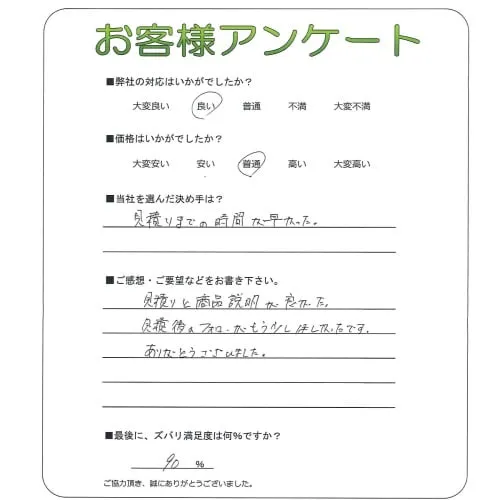 お客様アンケート
■弊社の対応はいかがでしたか?
大変良い 良い 普通 不満 大変不満
■価格はいかがでしたか?
大変安い 安い 普通 高い 大変高い
■当社を選んだ決め手は?
見積りまでの時間が早かった。
■ご感想・ご要望などをお書き下さい。
見積りと商品説明が良かった。
見積後のフォローがもう少しほしかったです。
ありがとうございました。
■最後に、ズバリ満足度は何%ですか?
90 %
ご協力頂き、誠にありがとうございました。